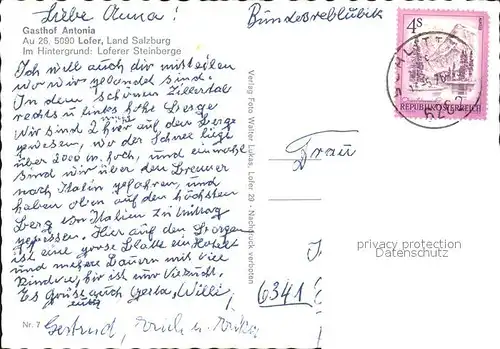 Liebe Anna!
Bundesreblubik
Gasthof Antonia
Au 26, 5090 Lofer, Land Salzburg
Im Hintergrund: Loferer Steinberge
Ich will auch dir mitteilen
wo wir gelandet sind.
In dem schönen Zillertal
rechts u links hohe Berge
Wir sind 2 hier auf den Berge
gewesen, wo der Schnee liegt
über 2000 m. hoch, und einmahl
sind wir über den Brenner
nach Italin gefahren, und
haben oben auf den höchsten
Berg von Italien zu Mittag
gegessen. Hier auf den Bergen
ist eine grose Platte ein Hotel
und mehere Bauern mit viel
Rindva, hir ist nur Viezucht.
Es Grüse auch Gerta, Willi,
Gertrud, Erich u. Erika
Verlag Foto Walter Lukas, Lofer 29 / Nachdruck verboten
4S
REPUBLIK ÖSTERREICH
SCHLITTERS
6262
Frau
privacy protection
Datenschutz
6341
Nr. 7